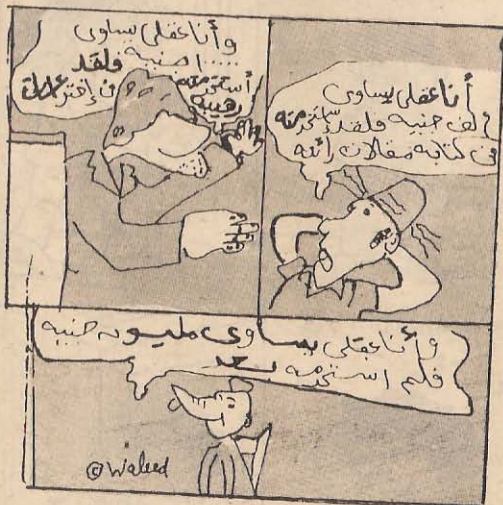 أنا عقلي يساوى
ألف جنيه ولقد إستخدمته
فى كتابة مقالات رائعه
وأنا عقلى يساوى
جنيه ولقد
أستخدمته فى إقتر
وأنا عقلى يساوى مليونه جنيه
فلم استخدمه بعد
© Waleed